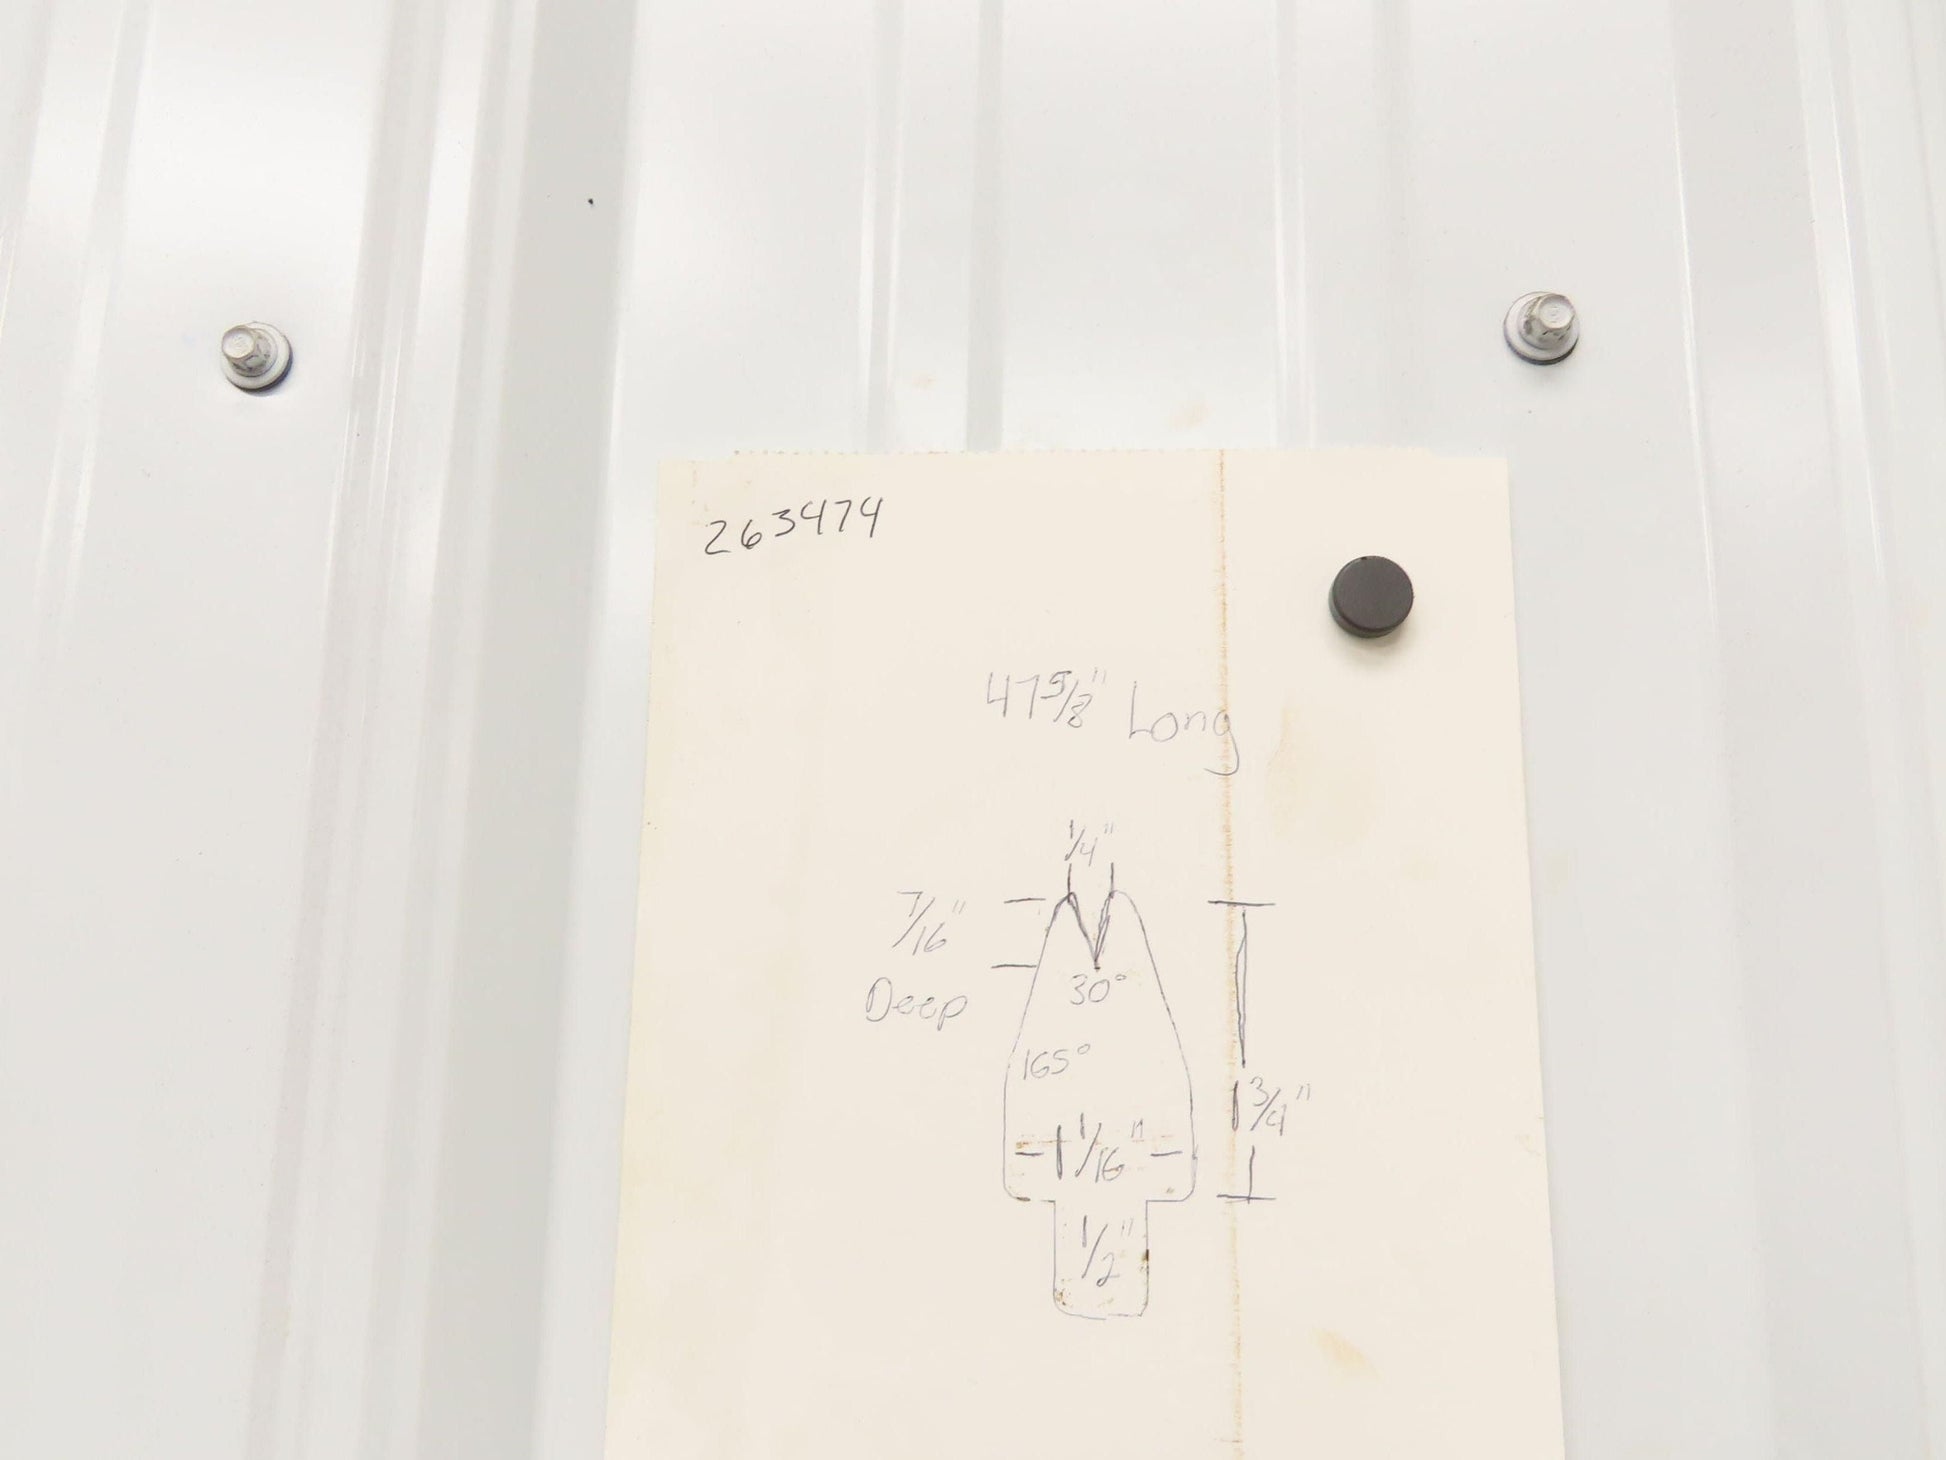 263474
47 5/8" Long
1/4"
7/16"
Deep
30°
165°
1 3/4"
1 1/16"
1/2"